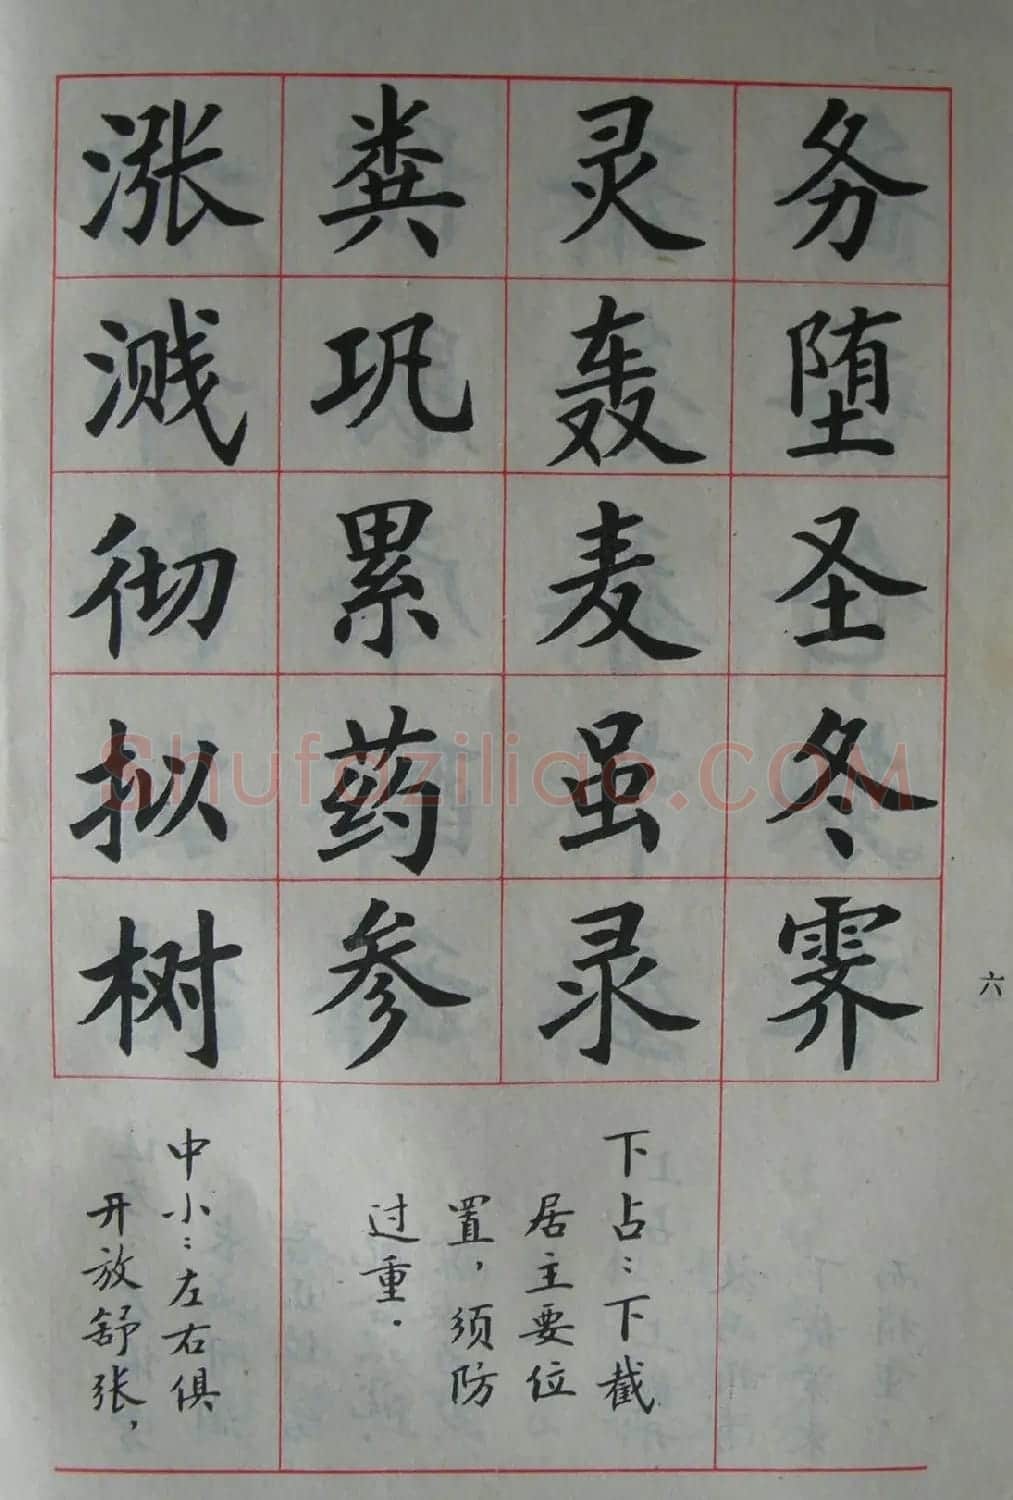 务堕圣冬霁
灵轰麦虽录
粪巩累药参
涨溅彻拟树
下占：下截
居主要位
置，须防
过重．
中小：左右俱
开放舒张，
六
Shufaziliao.COM